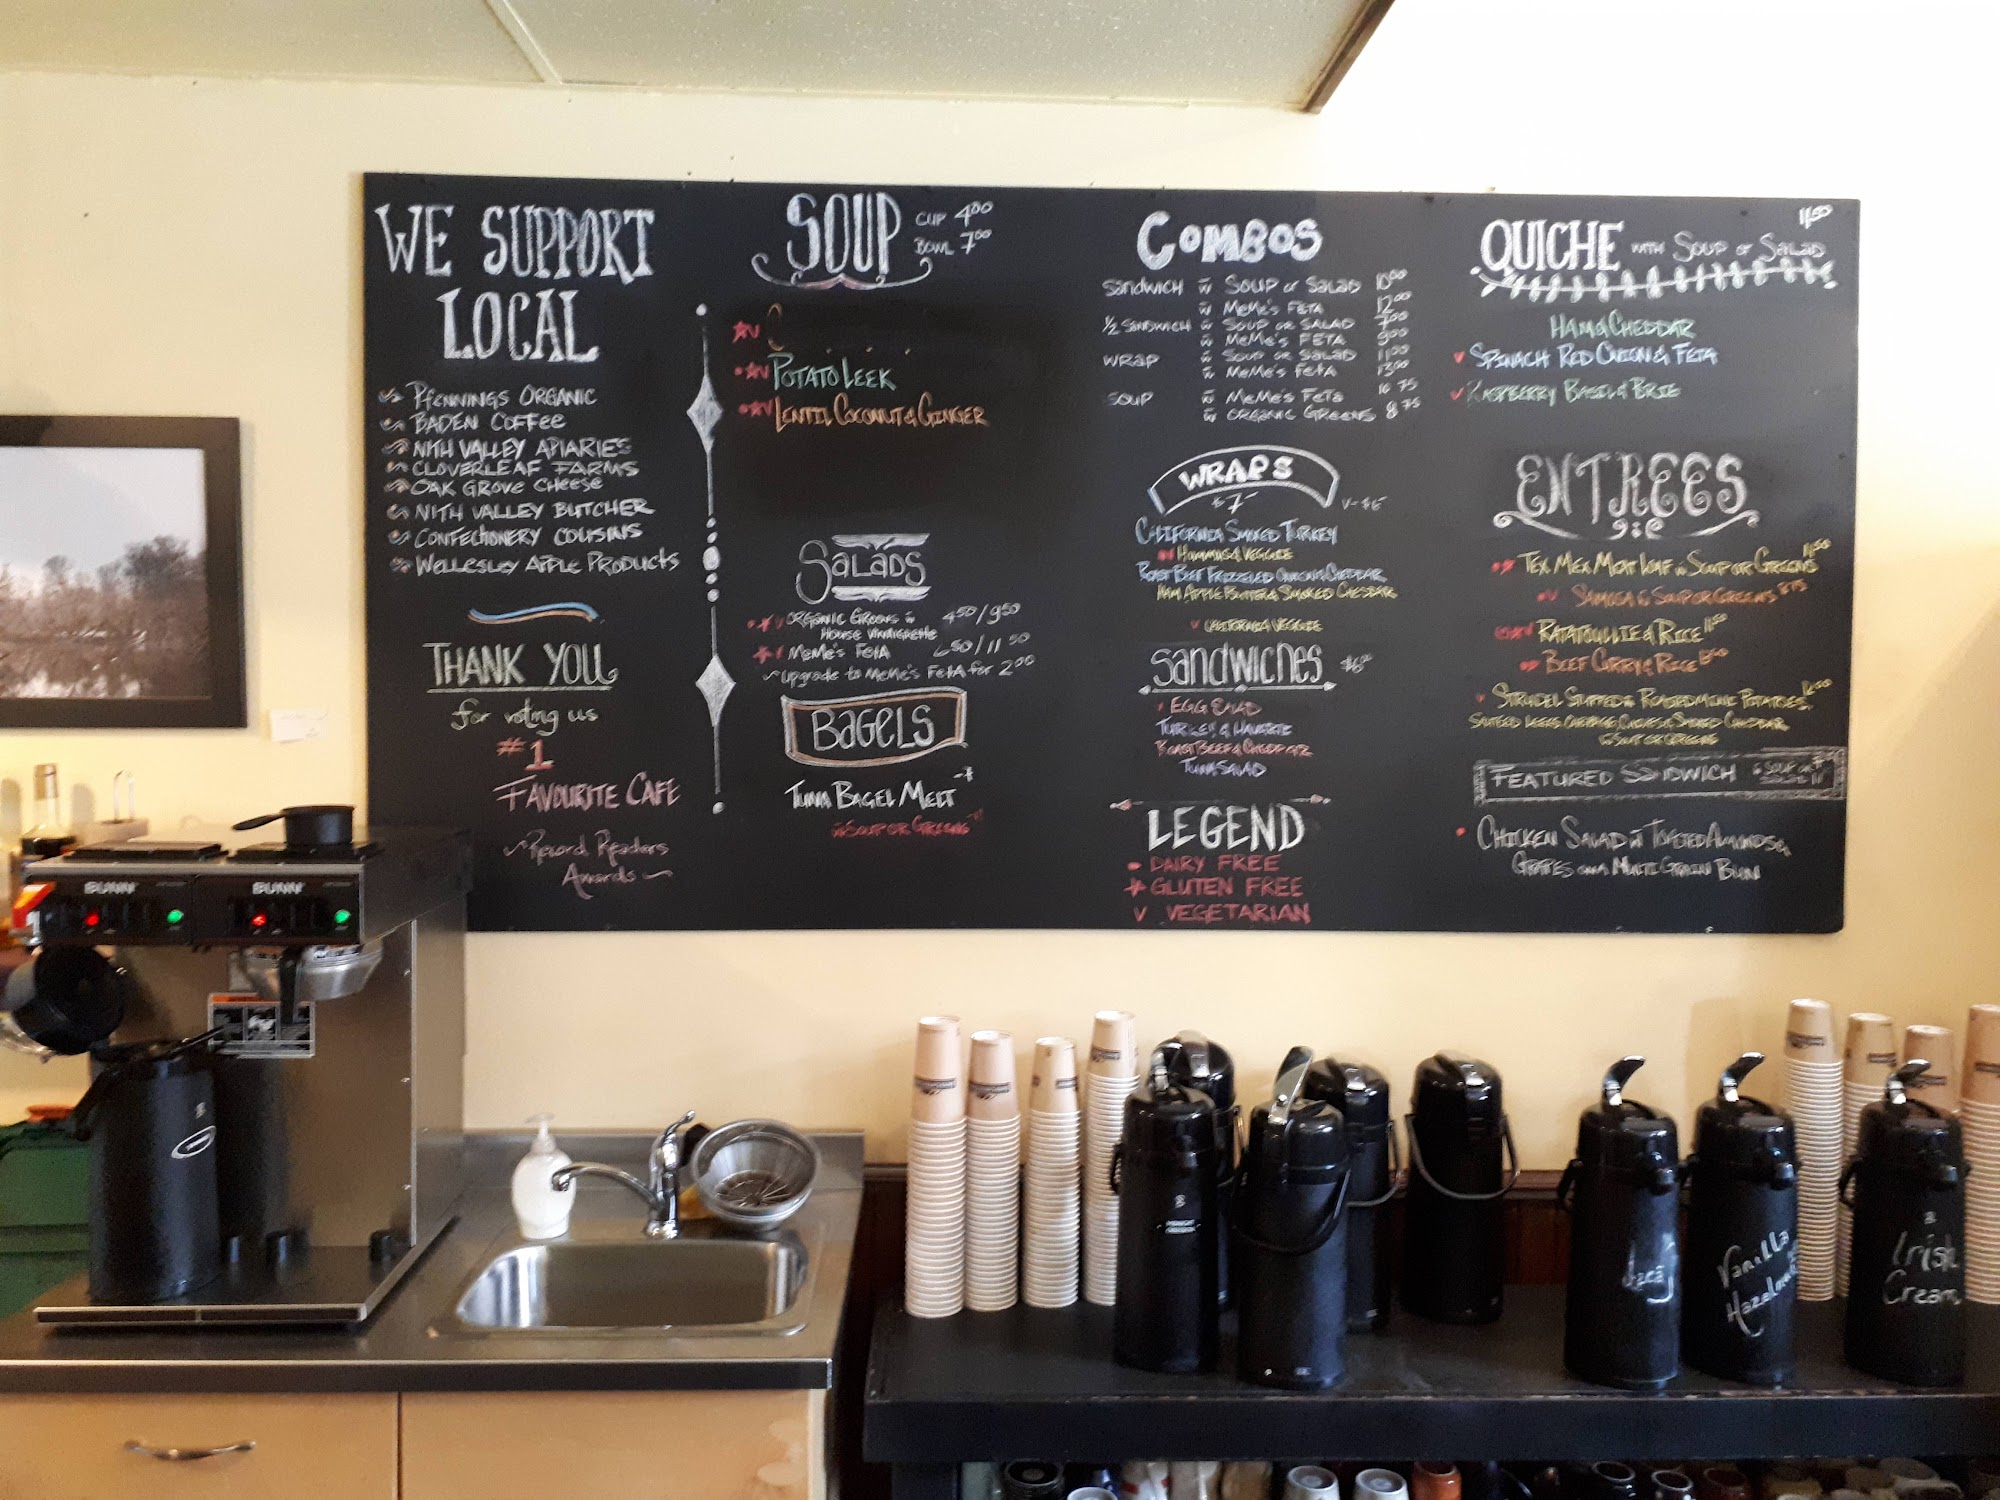 WE SUPPORT
LOCAL
PFENNINGS ORGANIC
BADEN COFFEE
NITH VALLEY APIARIES
CLOVERLEAF FARMS
OAK GROVE CHEESE
NITH VALLEY BUTCHER
CONFECTIONERY COUSINS
WELLESLEY APPLE PRODUCTS
THANK YOU
for voting us
#1
FAVOURITE CAFE
~Record Readers
Awards~
SOUP CUP 4.00
BOWL 7.00
POTATO LEEK
LENTIL COCONUT & GINGER
SALADS
ORGANIC GREENS w 4.50/9.50
HOUSE VINAIGRETTE
MEME'S FETA 6.50/11.50
~Upgrade to MEME'S FETA for 2.00
BAGELS
TUNA BAGEL MELT -7
w SOUP OR GREENS -11
COMBOS
SANDWICH w SOUP or SALAD 10.00
w MEME'S FETA 12.00
1/2 SANDWICH w SOUP OR SALAD 7.00
w MEME'S FETA 9.00
WRAP w SOUP or SALAD 11.00
w MEME'S FETA 13.00
SOUP w MEME'S FETA 10.75
w ORGANIC GREENS 8.75
WRAPS
$7- V-$6-
CALIFORNIA SMOKED TURKEY
V HUMMUS & VEGGIE
ROAST BEEF FRIZZLED ONIONS CHEDDAR
HAM APPLE BUTTER & SMOKED CHEDDAR
V CALIFORNIA VEGGIE
SANDWICHES $6.00
EGG SALAD
TURKEY & HAVARTI
ROAST BEEF & CHEDDAR
TUNA SALAD
LEGEND
• DAIRY FREE
* GLUTEN FREE
V VEGETARIAN
11.50
QUICHE WITH SOUP or SALAD
HAM & CHEDDAR
V SPINACH RED ONION & FETA
V RASPBERRY BASIL & BRIE
ENTREES
TEX MEX MEAT LOAF w SOUP OR GREENS 11.50
V SAMOSA w SOUP OR GREENS 8.75
RATATOUILLE & RICE
BEEF CURRY & RICE
V STRUDEL STUFFED w ROASTED POTATOES,
SMOKED CHEDDAR
w SOUP OR GREENS
FEATURED SANDWICH w SOUP or
SALAD 11
• CHICKEN SALAD w TOASTED ALMONDS &
GRAPES on a MULTI GRAIN BUN
BUNN
BUNN
Vanilla
Hazelnut
Irish
Cream